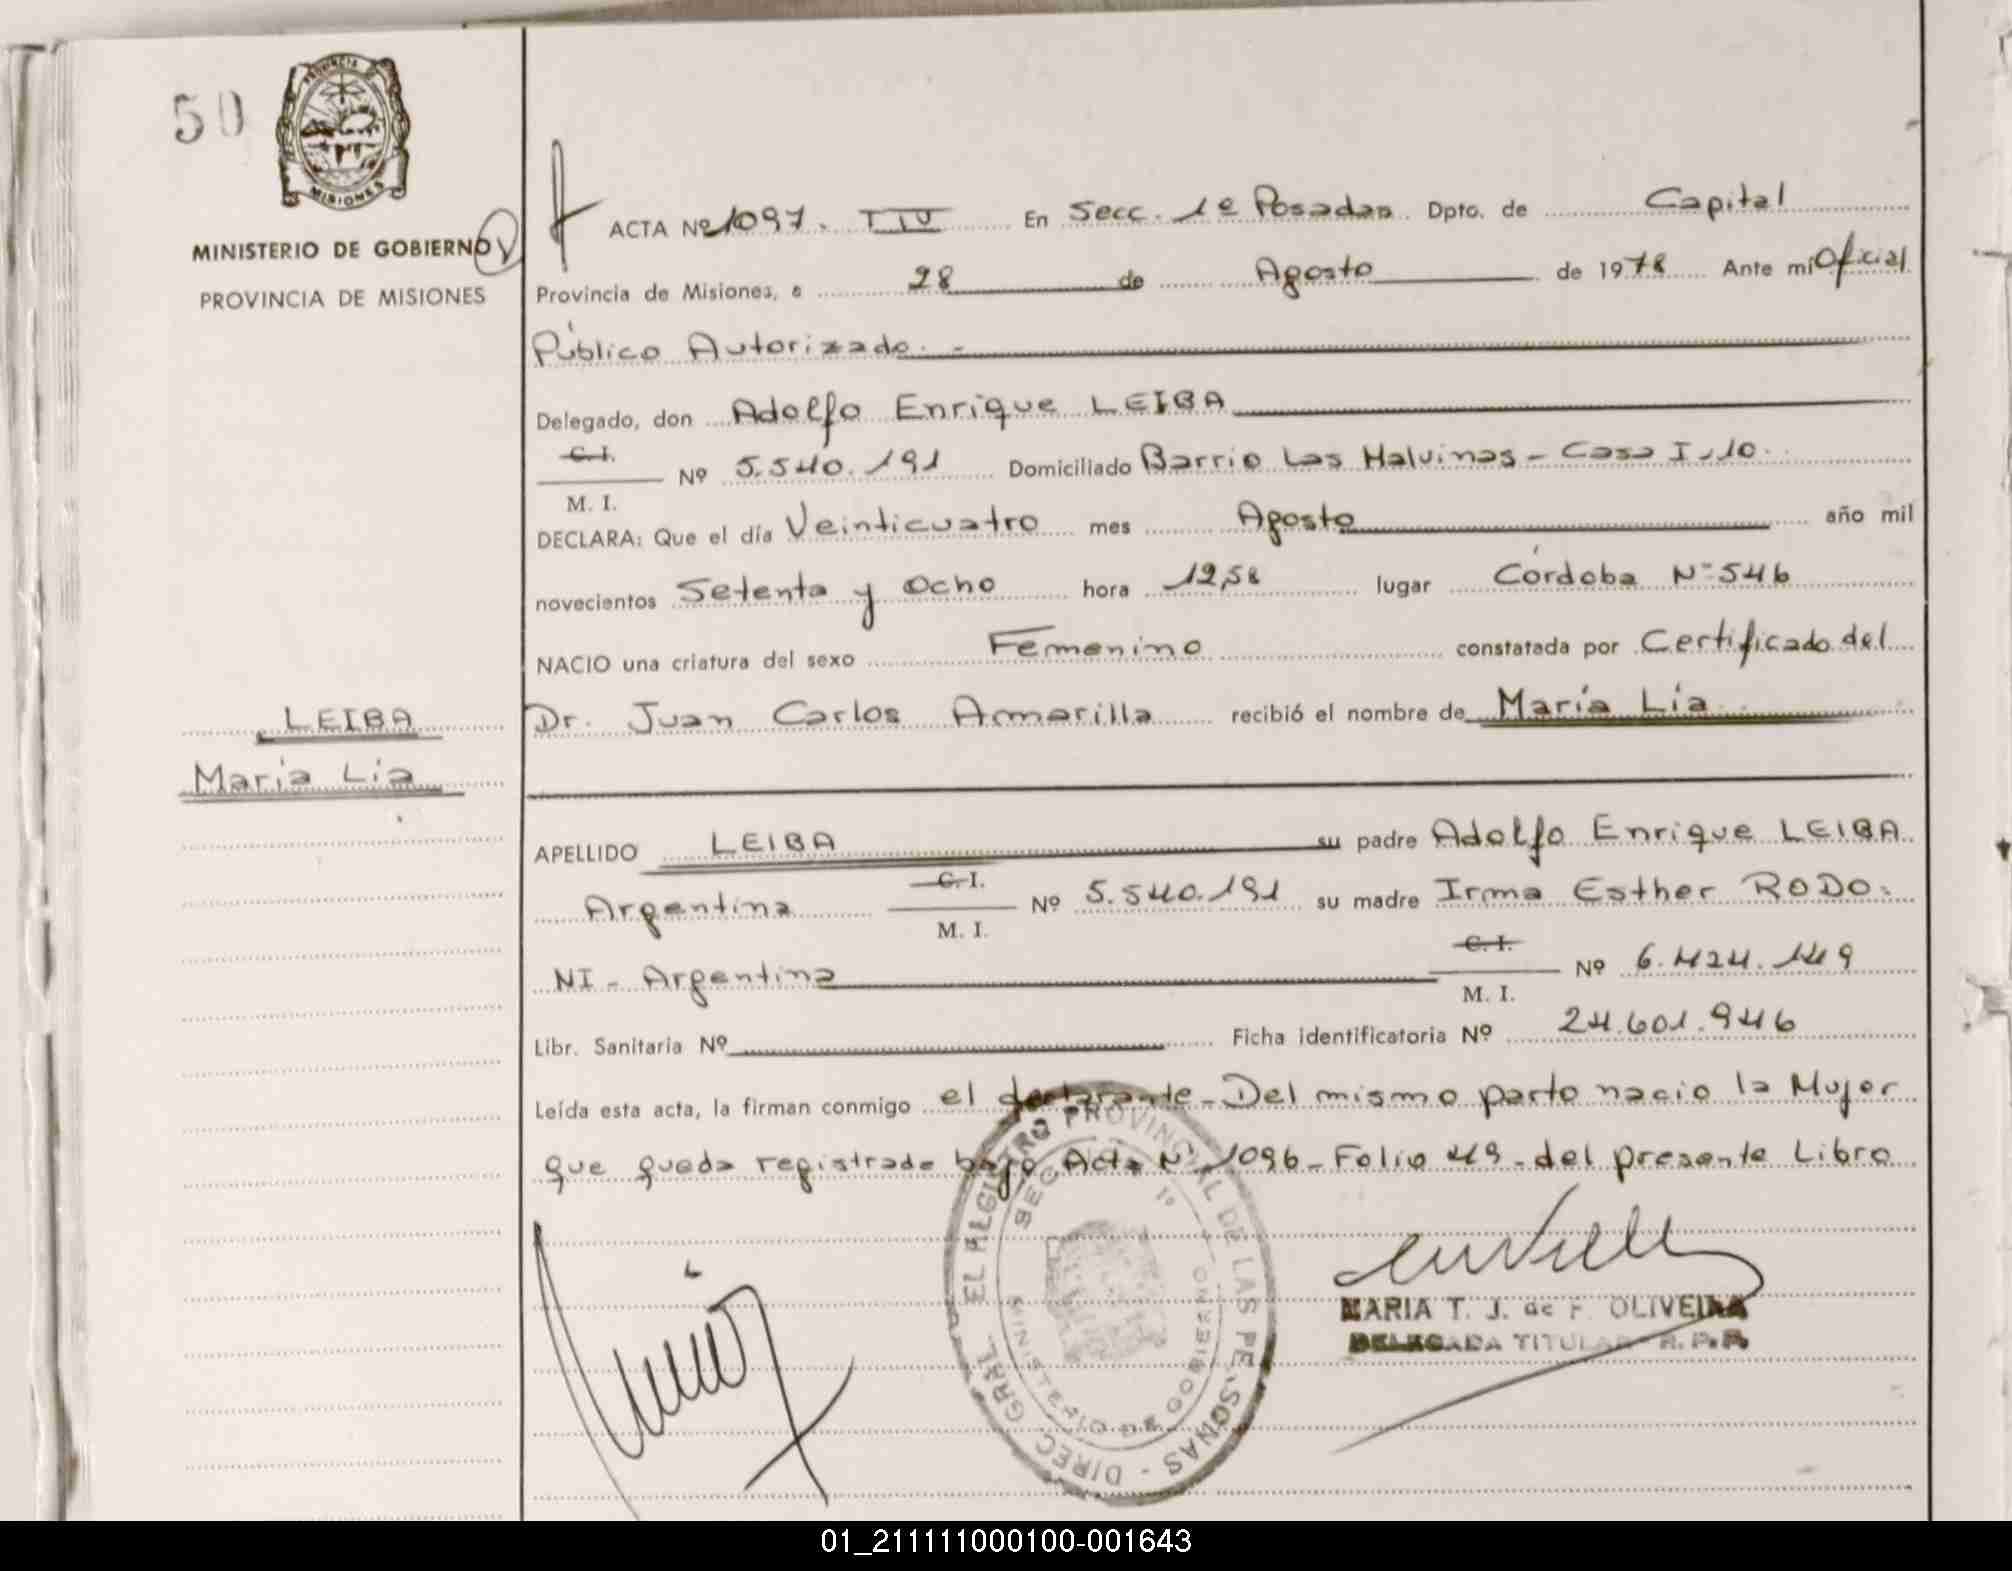 50
PROVINCIA DE
MISIONES
MINISTERIO DE GOBIERNO
PROVINCIA DE MISIONES
ACTA Nº 1097. T IV En Secc. 1º Posadas Dpto. de Capital
Provincia de Misiones, a 28 de Agosto de 1978 Ante mí Oficial
Público Autorizado. -
Delegado, don Adolfo Enrique LEIBA
C. I.
Nº 5.540.191 Domiciliado Barrio Las Malvinas - Casa I-10.
M. I.
DECLARA: Que el día Veinticuatro mes Agosto año mil
novecientos Setenta y Ocho hora 12,58 lugar Córdoba Nº 546
NACIO una criatura del sexo Femenino constatada por Certificado del
Dr. Juan Carlos Amarilla recibió el nombre de María Lía
LEIBA
María Lía
APELLIDO LEIBA su padre Adolfo Enrique LEIBA
C. I.
Argentina Nº 5.540.191 su madre Irma Esther RODO.
M. I.
C. I.
NI - Argentina Nº 6.424.149
M. I.
Libr. Sanitaria Nº Ficha identificatoria Nº 24.601.946
Leída esta acta, la firman conmigo el declarante - Del mismo parto nacio la Mujer
que queda registrada bajo Acta Nº 1096 - Folio 49 - del presente Libro
DIREC. GRAL. DEL REGISTRO PROVINCIAL DE LAS PERSONAS
SECC 1º
MINISTERIO DE GOBIERNO
MARIA T. J. de F. OLIVEIRA
DELEGADA TITULAR R. P. P.
01_211111000100-001643